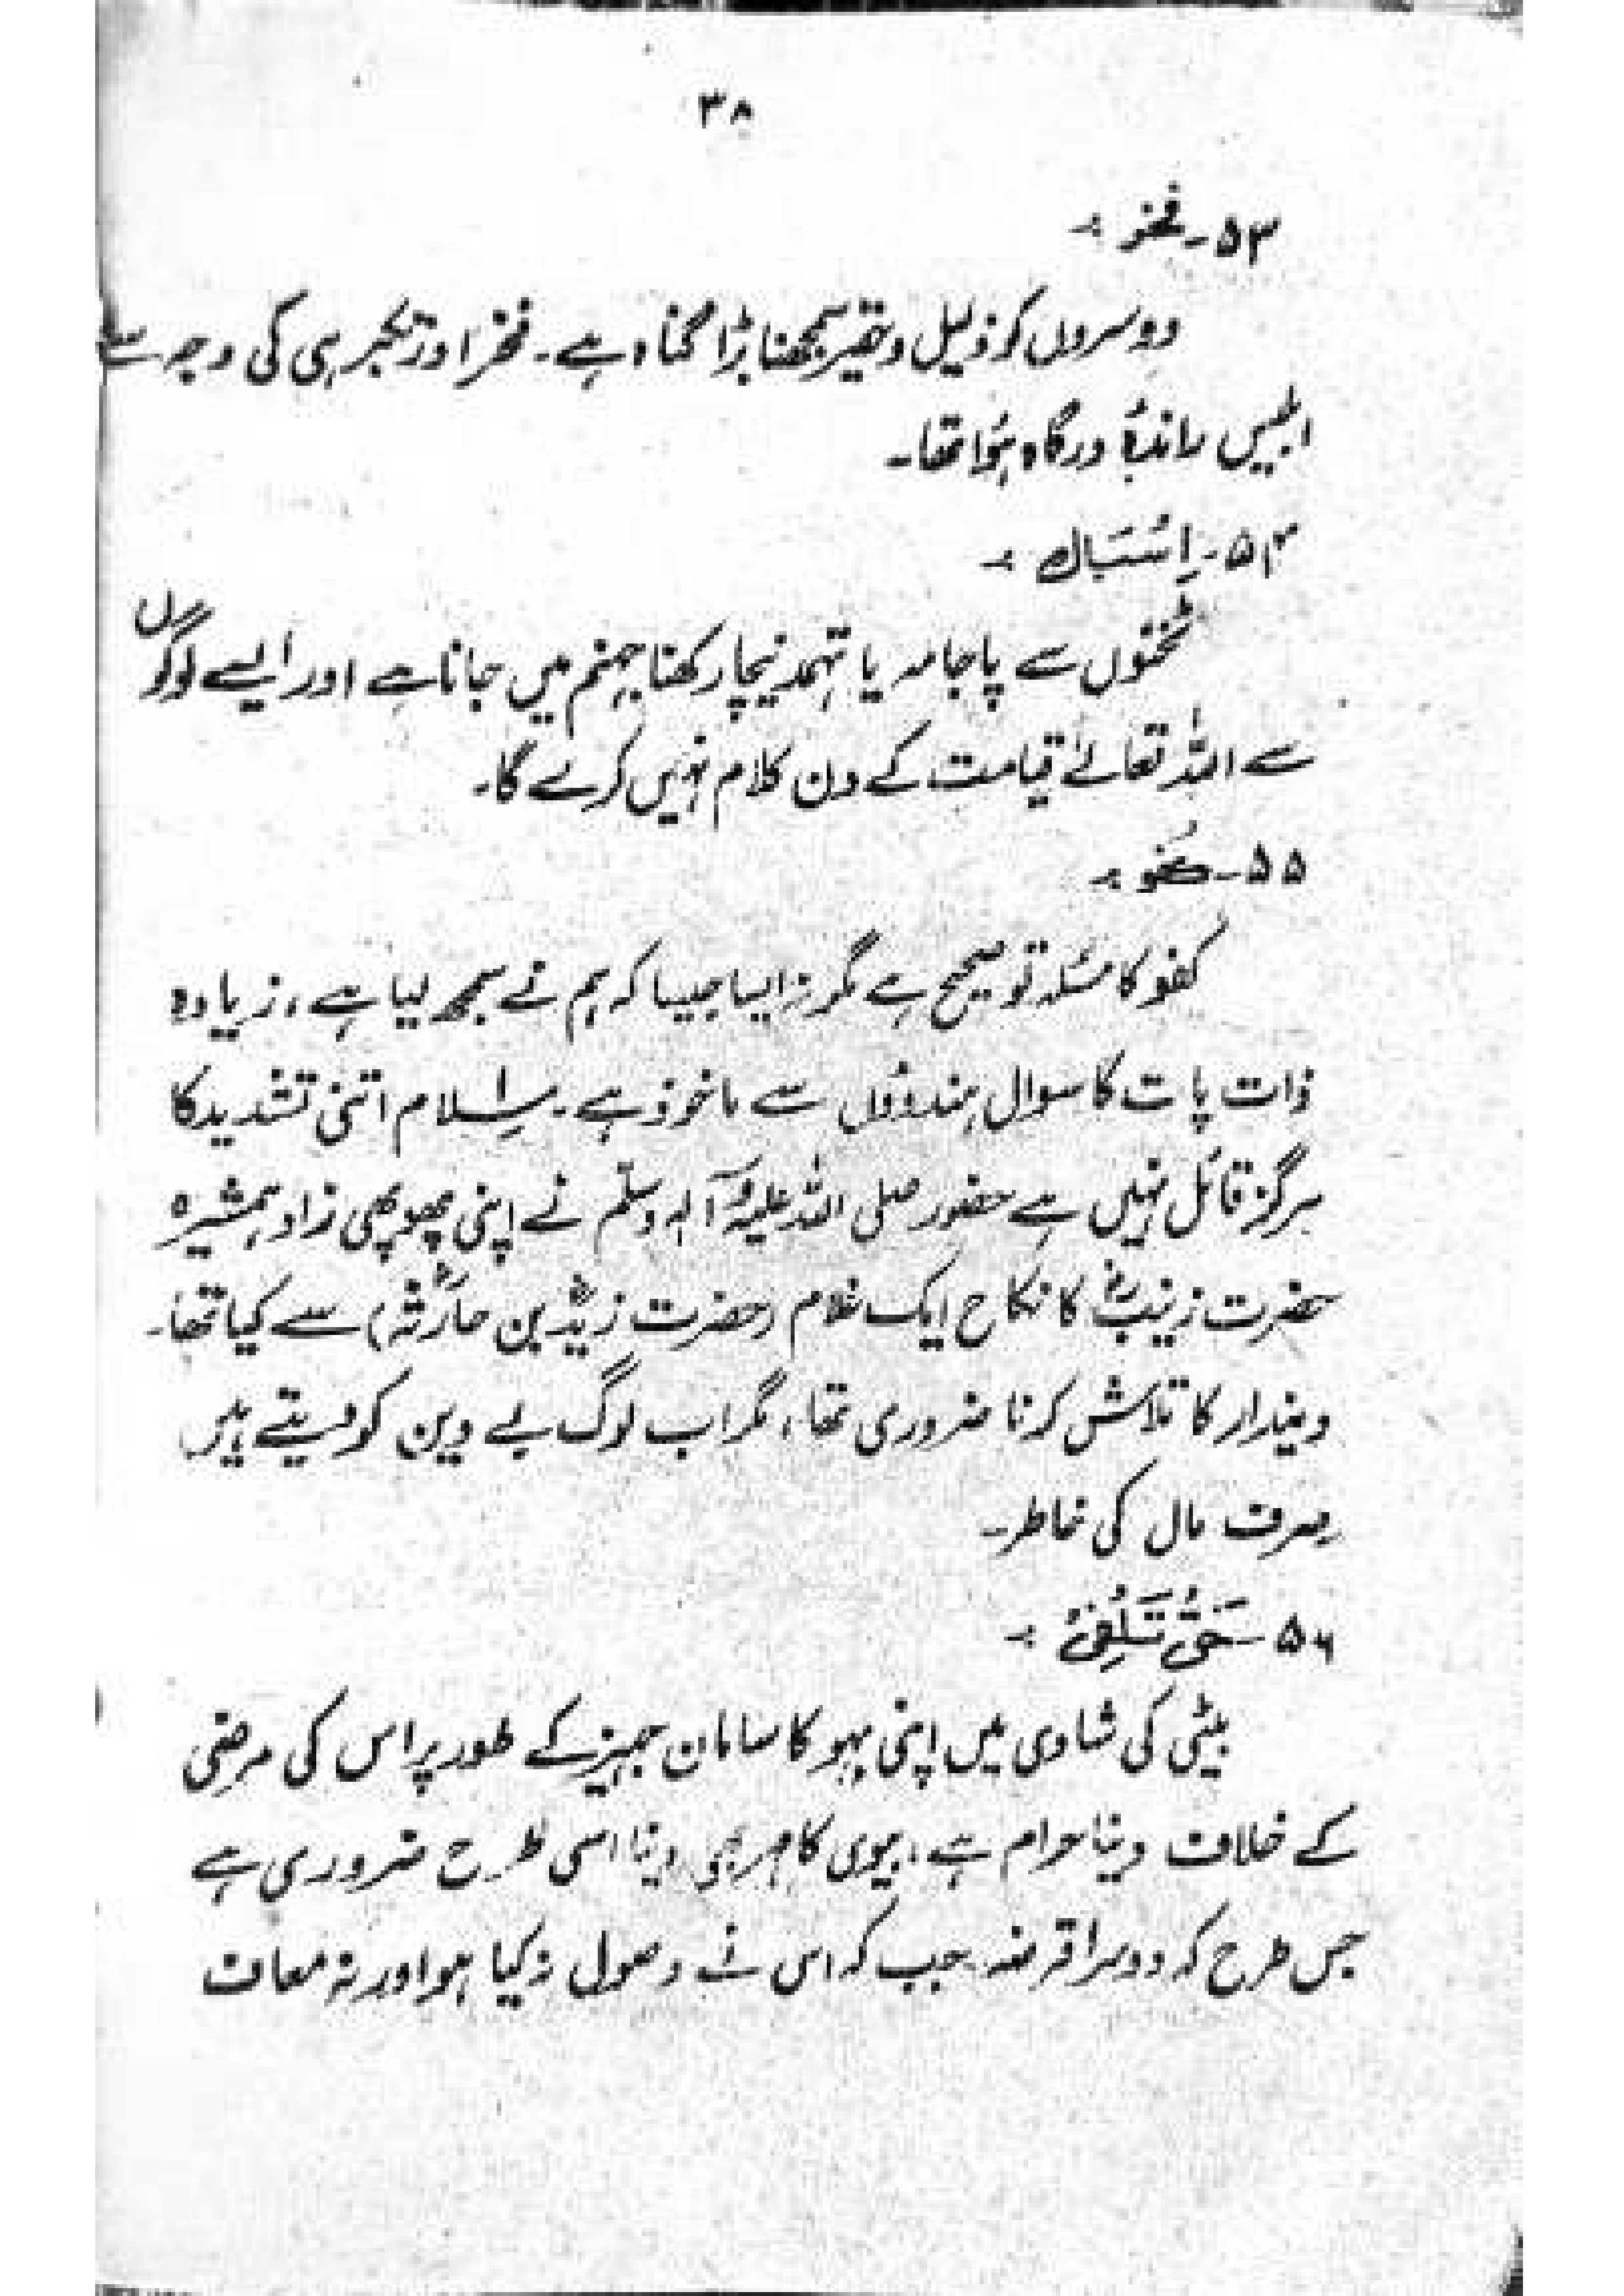 ۳۸
۵۳۔ فخر :۔
دوسروں کو ذلیل و حقیر سمجھنا بڑا گناہ ہے۔ فخر اور تکبر ہی کی وجہ سے
ابلیس راندۂ درگاہ ہُوا تھا۔
۵۴۔ اِسْبَال :۔
ٹخنوں سے پاجامہ یا تہمد نیچا رکھنا جہنم میں جانا ہے اور ایسے لوگوں
سے اللہ تعالےٰ قیامت کے دن کلام نہیں کرے گا۔
۵۵۔ کُفو :۔
کفو کا مسئلہ تو صحیح ہے مگر نہ ایسا جیسا کہ ہم نے سمجھ لیا ہے، زیادہ
ذات پات کا سوال ہندوؤں سے ماخوذ ہے۔ اِسلام اتنی تشدید کا
ہرگز قائل نہیں ہے حضور صلی اللہ علیہ وآلہ وسلّم نے اپنی پھوپھی زاد ہمشیرہ
حضرت زینبؓ کا نکاح ایک غلام (حضرت زیدؓ بن حارثہؓ) سے کیا تھا۔
دیندار کا تلاش کرنا ضروری تھا، مگر اب لوگ بے دین کو دیتے ہیں
صرف مال کی خاطر۔
۵۶۔ حَقْ تَلْفِیْ :۔
بیٹی کی شادی میں اپنی بہو کا سامان جہیز کے طور پر اس کی مرضی
کے خلاف دینا حرام ہے، بیوی کا مہر بھی دینا اسی طرح ضروری ہے
جس طرح کہ دوسرا قرضہ جب کہ اس نے وصول نہ کیا ہو اور نہ معاف